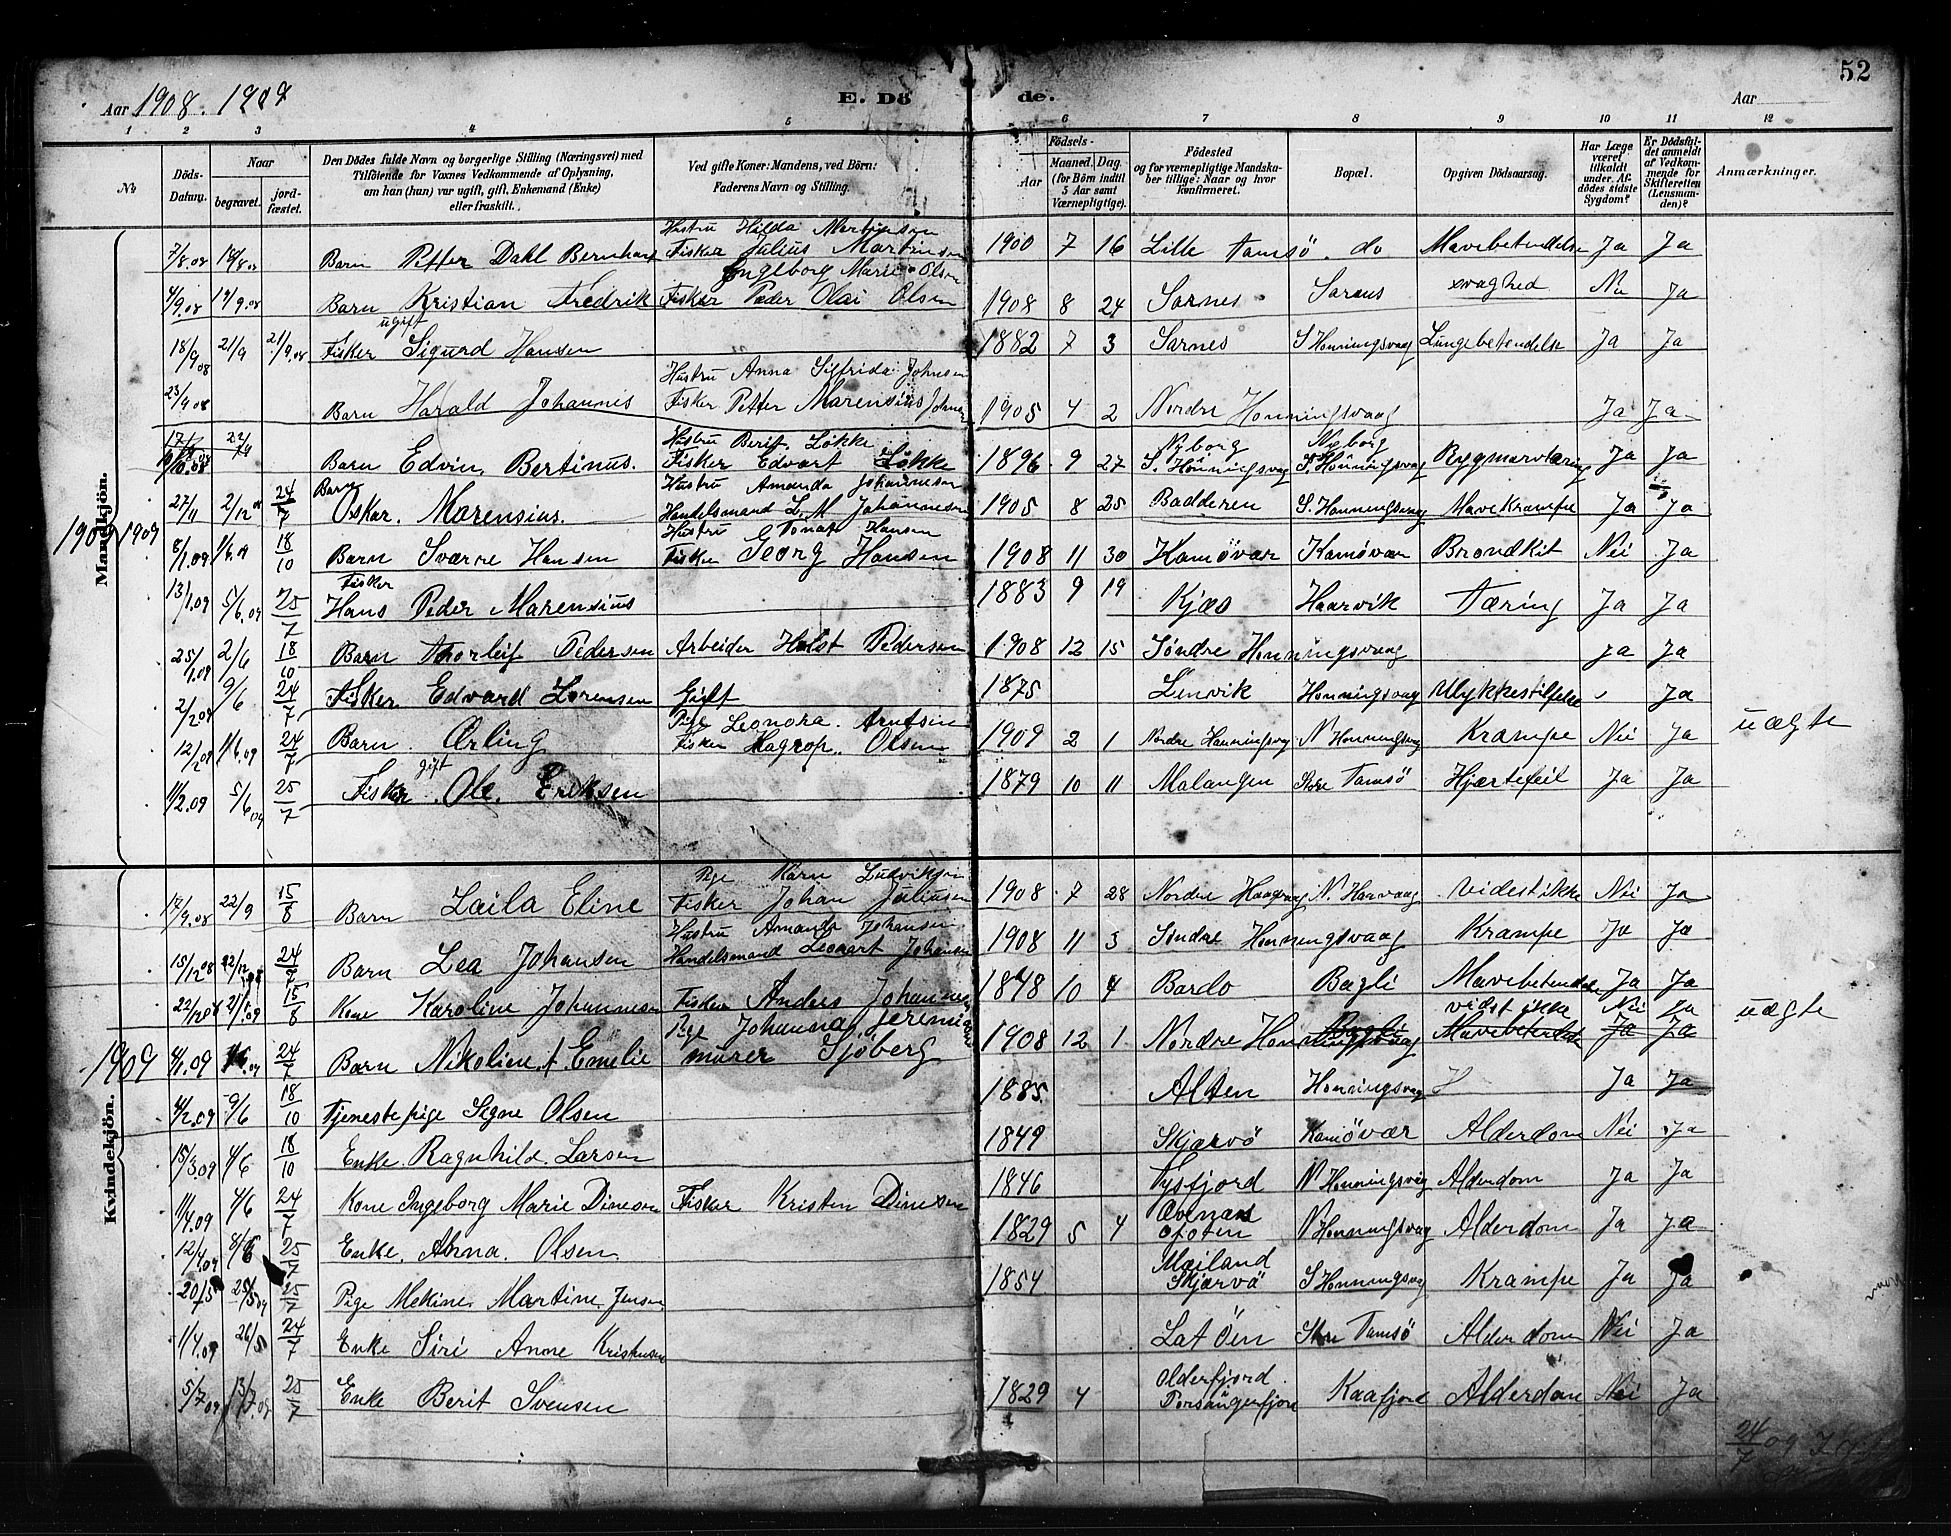 52
Aar 1908. 1909
E. Dö de.
Aar
1 2 3 4 5 6 7 8 9 10 11 12
No
Döds-Datum.
Naar
begravet.
jord-fæstet.
Den Dödes fulde Navn og borgerlige Stilling (Næringsvei) med
Tilföiende for Voxnes Vedkommende af Oplysning,
om han (hun) var ugift, gift, Enkemand (Enke)
eller fraskilt.
Ved gifte Koner: Mandens, ved Börn:
Faderens Navn og Stilling.
Födsels-
Aar
Maaned. Dag.
(for Börn indtil
5 Aar samt
Værnepligtige).
Födested
og for værnepligtige Mandska-
ber tillige: Naar og hvor
konfirmeret.
Bopæl.
Opgiven Dödsaarsag.
Har Læge
været
tilkaldt
under Af-
dödes sidste
Sygdom?
Er Dödsfal-
det anmeldt
af Vedkom-
mende for
Skifteretten
(Lensman-
den)?
Anmærkninger.
Mandkjön.
Hustru Hilda Martinsen
7/8.08 Barn Petter Dahl Bernhard Fisker Julius Martinsen 1900 7 16 Lille Tamsö do Mavebetendelse Ja Ja
Ingeborg Marie Olsen
4/9.08 19/9.08 Barn Kristian Fredrik Fisker Peder Olai Olsen 1908 8 24 Sarnes Sarnes svaghed Nei Ja
ugift
18/9 08 21/9 21/9.08 Fisker Sigurd Hansen 1882 7 3 Sarnes S Honningsvaag Lungebetendelse Ja Ja
Hustru Anna Silfrida Johnsen
23/9 08 Barn Harald Johannis Fisker Petter Marensius Johnsen 1905 4 2 Nordre Honningsvaag Ja Ja
Hustru Berit Løkke Nyborg Nyborg
Barn Edvin Bertinus. Fisker Edvart Løkke 1896 9 27 S. Honningsvag S. Honningsvag Rygmarvtæring Ja Ja
Barn Hustru Amanda Johannesen
27/11 2/12 08 24/7 Oskar. Marensius. Handelsmand L. M Johannesen 1905 8 25 Badderen S. Honningsvag Mavekrampe Ja Ja
1909 1909
Hustru Tomat Hansen
8/1.09 18/10 Barn Sværre Hansen Fisker Georg Hansen 1908 11 30 Kamövær Kamövær Brondkit Nei Ja
Fisker
13/1.09 5/6.09 25/7 Hans Peder Marensius 1883 9 19 Kjæs Haarvik Tæring Ja Ja
25/1.09 2/6 18/10 Barn Thorleif Pedersen Arbeider Holst Pedersen 1908 12 15 Söndre Honningsvaag Ja Ja
2/2 09 9/6 24/7 Fisker. Edvard Lorensen Gift 1875 Lenvik Honningsvag Ulykkestilfelde Ja
Pige Leonora. Arntsen
12/2 09 24/7 Barn. Ærling Fisker Hagrop. Olsen 1909 2 1 Nordre Honningsvag N Honningsvag Krampe Nei Ja uægte
gift
11/2.09 5/6 09 25/7 Fisker. Ole. Eriksen 1879 10 11 Malangen Store Tamsö Hjærtefeil Ja Ja
Kvindekjön.
Pige Karn Ludviksen
17/9.08 22/9 15/8 Barn Laila Eline Fisker Johan Juliusen 1908 7 28 Nordre N. Honvaag videst ikke Nei Ja
Hustru Amanda Johansen
15/12 08 24/7 Barn Lea Johansen Handelsmand Leonart Johansen 1908 11 3 Söndre Honningsvaag Krampe Ja Ja
15/8 Kone Karoline Johannesen Fisker Andres Johannesen 1848 10 4 Bardo Bagli Mavebetendelse Ja Ja
Pige Johanna Jeremia vidst ikke Nei Ja uægte
1909 4/1.09 24/7 Barn Nikoline Emelie murer Sjöberg 1908 12 1. Nordre Honningsvag Bagli Mavebetendelse Ja Ja
4/2.09 9/6 18/10 Tjenestepige Signe Olsen 1885 Alten Honningsvag H Ja Ja
15/3.09 4/6 18/10 Enke. Ragnhild. Larsen 1849 Skjærvö Kamövær Alderdom Nei Ja
11/4.09 4/6 24/7 Kone Ingeborg Marie Dinesen Fisker Kristen Dinesen 1846 Tysfjord N Honningsvag Alderdom Ja Ja
12/4.09 8/6 25/7 Enke. Anna. Olsen 1829 5 4 Ofoten N Honningsvag Alderdom Ja Ja
Meiland
20/5 25/7 Pige Mekine. Martine. Jensen 1854 Skjærvö S Honningsvag Krampe Ja Ja
1/4.09 26/5 24/7 Enke Siri Anne Kristensen Lat Öen Store Tamsö Alderdom Nei Ja
Olderfjord
5/7 09 13/7.09 25/7 Enke Berit Svensen 1829 4 Porsangerfjord Kaafjord Alderdom Nei Ja
24/7 og